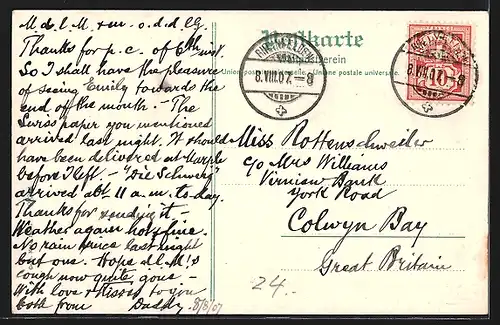 Postkarte
Weltpostverein
Union postale universelle. Union postale universelle.
RHEINFELDEN
8.VIII.07.—8
RHEINFELDEN
8.VIII.07.—8
M.d.l.M. o.d.d
Thanks for p.c. of 6th inst.
So I shall have the pleasure
of seeing Emily towards the
end of the month. - The
Swiss paper you mentioned
arrived last night. It should
have been delivered at Marple
before I left. - "Die Schweiz"
arrived abt. 11 a.m. to-day.
Thanks for sending it -
Weather again hot & fine.
No rain since last night
but one. Hope dl. M's
cough now quite gone -
With love & kisses to you
both from Daddy
8/8/07
Miss Rottenschweiler
c/o Mrs Williams
Bank
York Road
Colwyn Bay
Great Britain
24.-